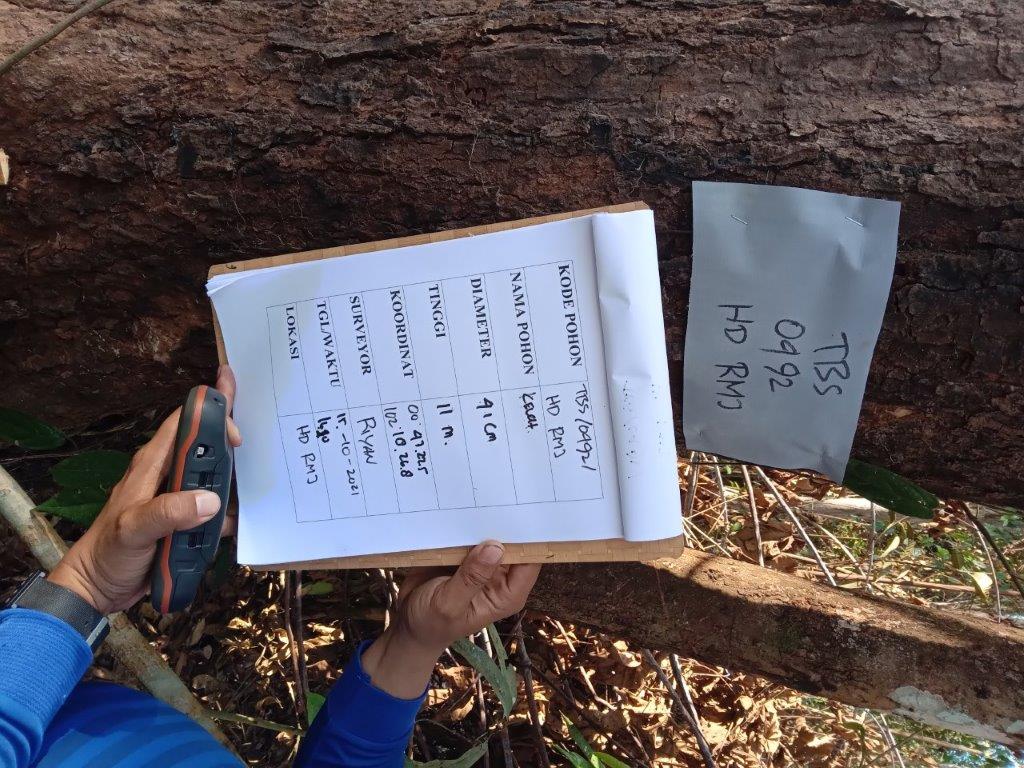 TBS
0992
HD RMJ
KODE POHON TBS/0992/
HD RMJ
NAMA POHON
DIAMETER 91 CM
TINGGI 11 M.
KOORDINAT 00°47.225
102°10.268
SURVEYOR RIYAN
TGL/WAKTU 15-10-2021
LOKASI HD RMJ